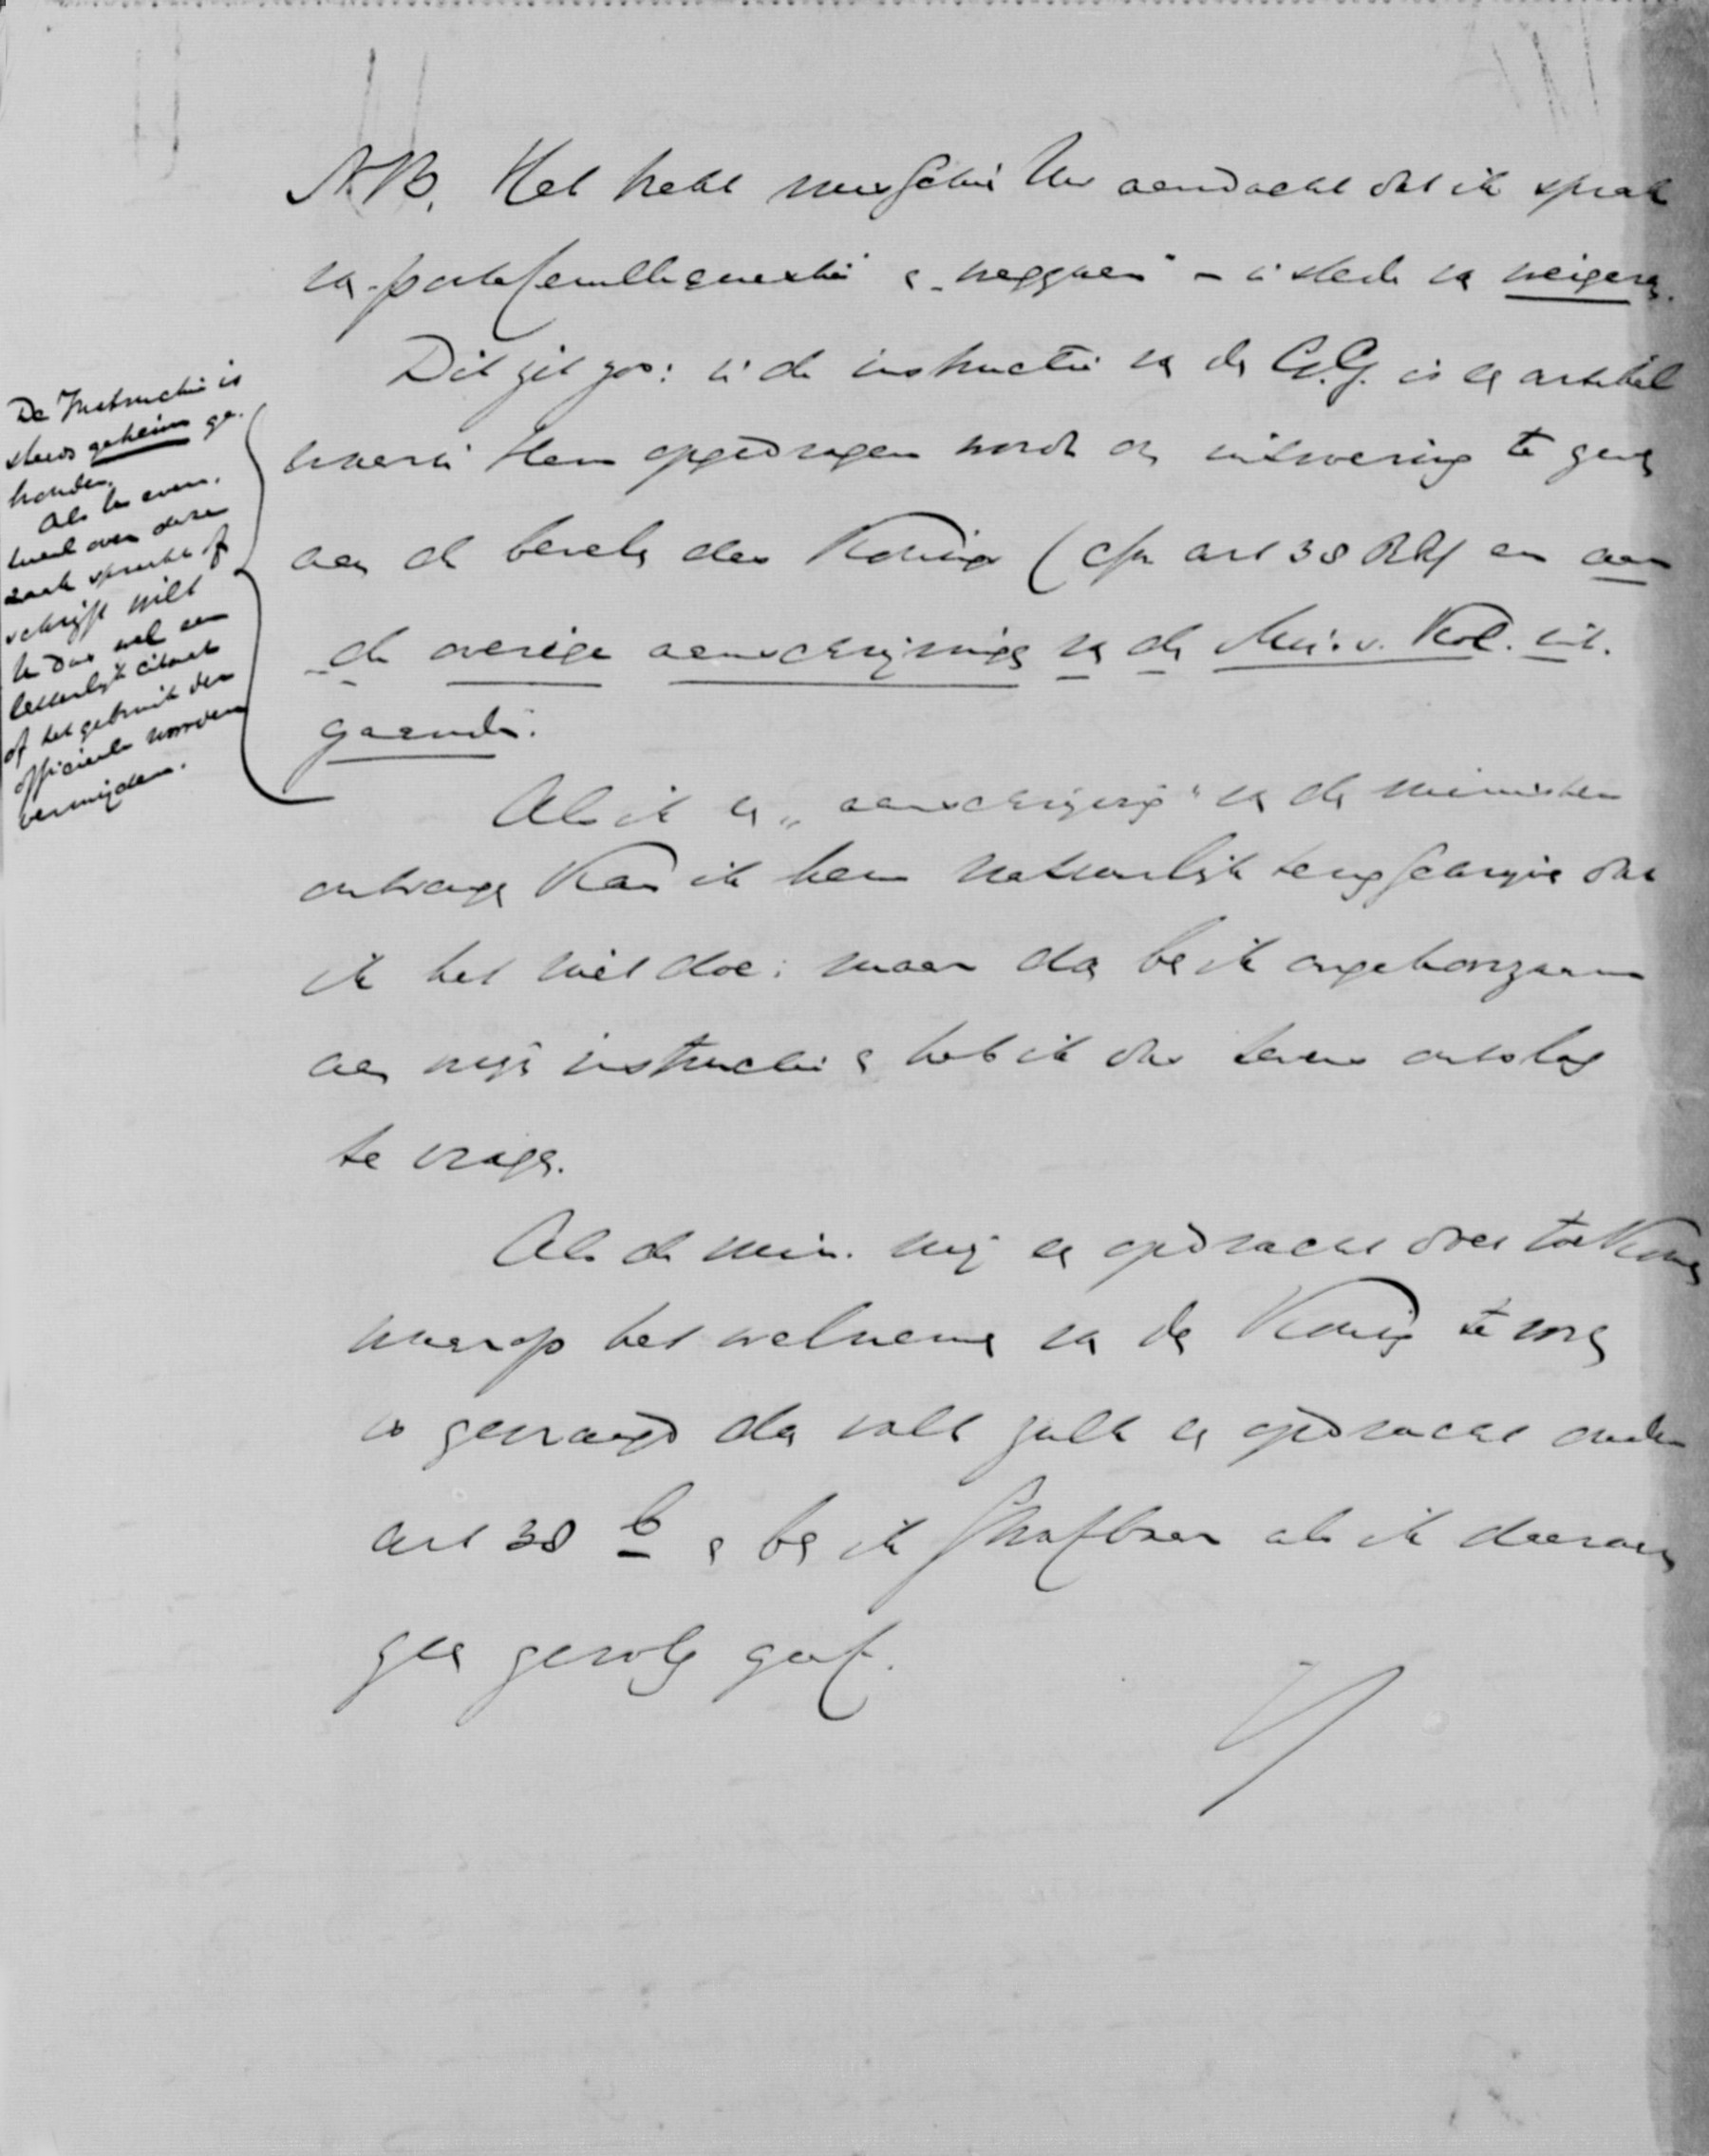 N.B. Het trekt misschien Uw aandacht dat ik sprak
van „portefeuillequestie" en „weggaan" – in stede van weigeren.
Dit zit zoo: in de instructie van den G.G. is een artikel
waarin Hem opgedragen wordt om uitvoering te geven
aan de bevelen des Konings (cfr art 38 RR) en aan
de overige aanschrijvingen van den Min. v. Kol. uit-
gaande.
De Instructie is
steeds geheim ge-
houden.
Als U even-
tueel over deze
zaak spreekt of
schrijft wilt
U dus wel een
letterlijk citaat
of het gebruik der
officieele woorden
vermijden.
Als ik een „aanschrijving" van den minister
ontvang kan ik hem natuurlijk terugschrijven dat
ik het niet doe: maar dan ben ik ongehoorzaam
aan mijn instructie en heb ik dus tevens ontslag
te vragen.
Als de min. mij een opdracht doet toekomen
waarop het welnemen van den Koning te voren
is gevraagd dan valt zulk een opdracht onder
art 38 b en ben ik strafbaar als ik daaraan
geen gevolg geef.